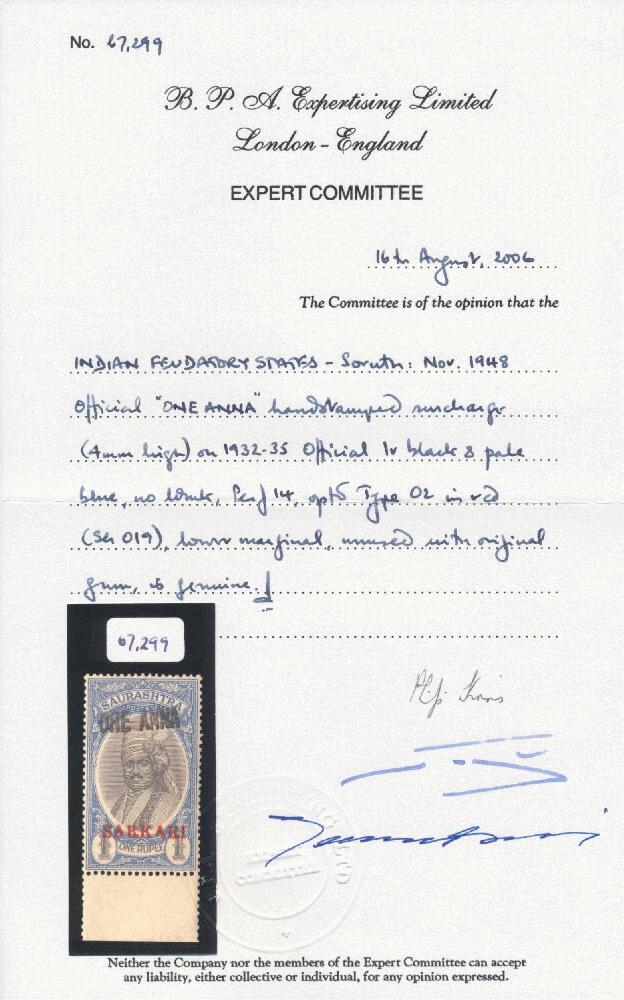 No. 67,299
B. P. A. Expertising Limited
London - England
EXPERT COMMITTEE
16th August, 2006
The Committee is of the opinion that the
INDIAN FEUDATORY STATES - Soruth: Nov. 1948
Official "ONE ANNA" handstamped surcharge
(4mm high) on 1932-35 Official 1r black & pale
blue, no wmk, Perf 14, optd Type O2 in red
(SG O19), lower marginal, unused with original
gum, is genuine.
67,299
SAURASHTRA
POSTAGE
ONE ANNA
SARKARI
1 ONE RUPEE 1
COMMITTEE
LTD
Neither the Company nor the members of the Expert Committee can accept
any liability, either collective or individual, for any opinion expressed.